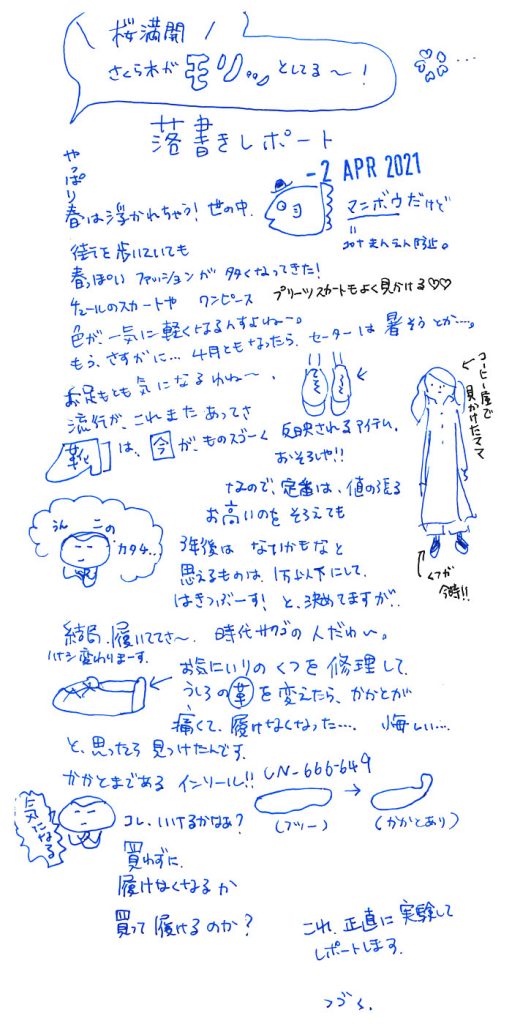 桜満開
さくら木がモリッとしてる〜!
落書きレポート
-2 APR 2021
やっぱり
春は浮かれちゃう!世の中.
マンボウだけど
=
コロナまんえん防止。
街を歩いていても
春っぽいファッションが多くなってきた!
チュールのスカートや ワンピース
プリーツスカートもよく見かける♡♡
色が、一気に軽くなるんすよねー。
もう、さすがに…4月ともなったら、セーターは暑そうとか…。
お足もとも気になるわね〜.
流行が、これまたあってさ
靴は、今が、ものスゴーく反映されるアイテム。
おそろしや!!
コーヒー屋で
見かけたママ
くつが
今時!!
なので、定番は、値の張る
お高いのをそろえても
うん
この
カタチ…
3年後はないかもなと
思えるものは、1万以下にして、
はきつぶーす!と、決めてますが.
結局、履いててさ〜. 時代サクゴの人だわ〜。
ハナシ変わりまーす.
お気にいりのくつを修理して、
うしろの革を変えたら、かかとが
痛くて、履けなくなった…. 悔しい…
と、思ったら見つけたんです.
かかとまであるインソール!! LN-666-649
気になる
コレ、いけるかなぁ?
(フツー)
→
(かかとあり)
買わずに
履けなくなるか
買って履けるのか?
これ、正直に実験して
レポートします.
つづく.